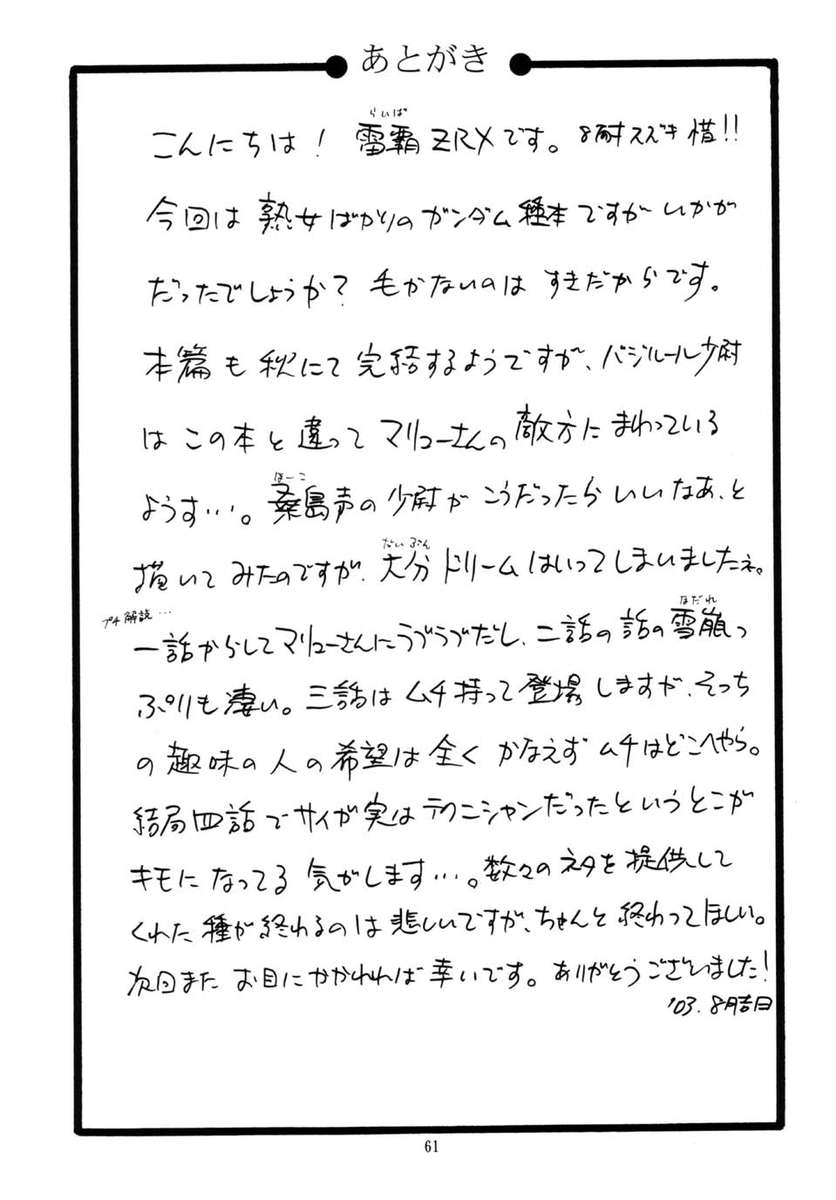 あとがき
こんにちは！雷覇ZRXです。8耐スズキ惜!!
らいぱ
今回は熟女ばかりのガンダム種本ですがいかが
だったでしょうか？毛がないのはすきだからです。
本篇も秋にて完結するようですが、バジルール少尉
はこの本と違ってマリューさんの敵方にまわっている
ようす…。桑島声の少尉がこうだったらいいなあ、と
ほーこ
描いてみたのですが、大分ドリームはいってしまいましたネ。
だいぶん
プチ解説…
一話からしてマリューさんにラブラブだし、二話の話の雪崩っ
なだれ
ぷりも凄い。三話はムチ持って登場しますが、そっち
の趣味の人の希望は全くかなえずムチはどこへやら。
結局四話でサイが実はテクニシャンだったというとこが
キモになってる気がします…。数々のネタを提供して
くれた種が終わるのは悲しいですが、ちゃんと終わってほしい。
次回またお目にかかれれば幸いです。ありがとうございました！
'03.8月吉日
61